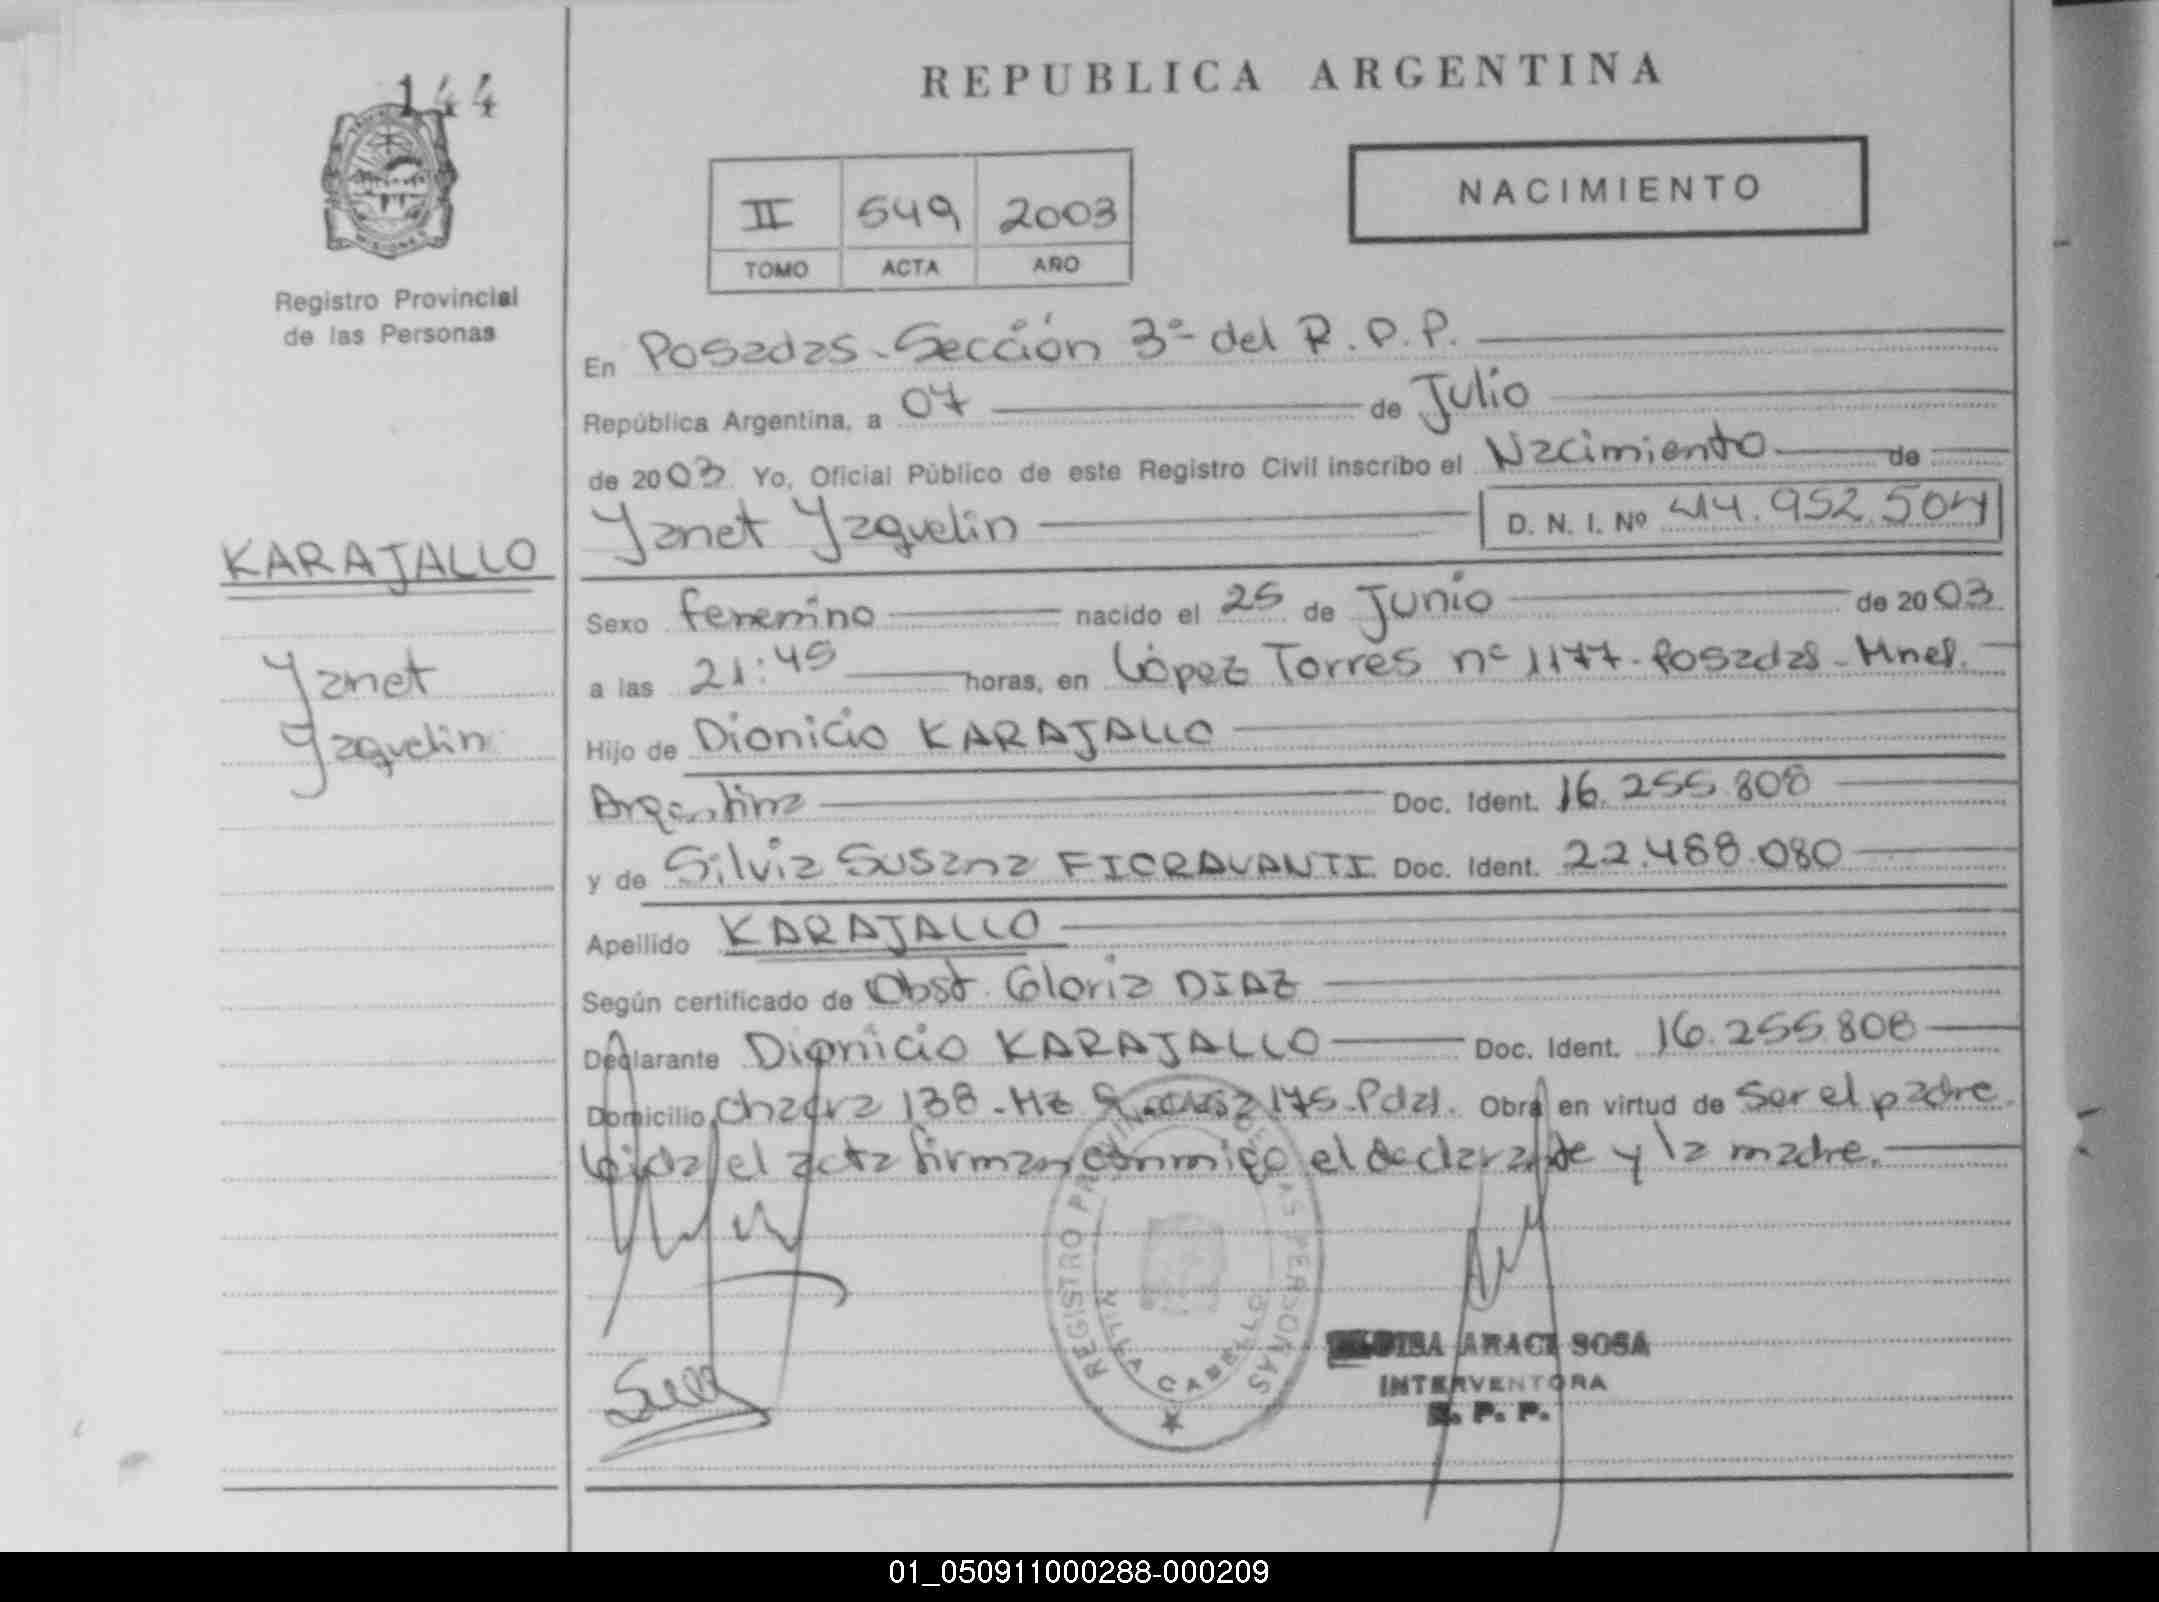 144
REPUBLICA ARGENTINA
NACIMIENTO
II 549 2003
TOMO ACTA AÑO
Registro Provincial
de las Personas
En Posadas - Sección 3º del R.P.P.
República Argentina, a 07 de Julio
de 2003 Yo, Oficial Público de este Registro Civil inscribo el Nacimiento de
Yanet Yaquelin D. N. I. Nº 44.952.504
KARAJALLO
Sexo femenino nacido el 25 de Junio de 2003
Yanet
a las 21:45 horas, en López Torres nº 1177 - Posadas - Mnes.
Yaquelin
Hijo de Dionicio KARAJALLO
Argentina Doc. Ident. 16.255.808
y de Silvia Susana FIORAVANTI Doc. Ident. 22.488.080
Apellido KARAJALLO
Según certificado de Obst. Gloria DIAZ
Declarante Dionicio KARAJALLO Doc. Ident. 16.255.808
Domicilio Chacra 138 - Mz 175 - Pdas. Obra en virtud de Ser el padre
Leida el acta firman conmigo el declarante y la madre.
REGISTRO PROVINCIAL DE LAS PERSONAS
VILLA CABELLO
ARACI SOSA
INTERVENTORA
R. P. P.
01_050911000288-000209